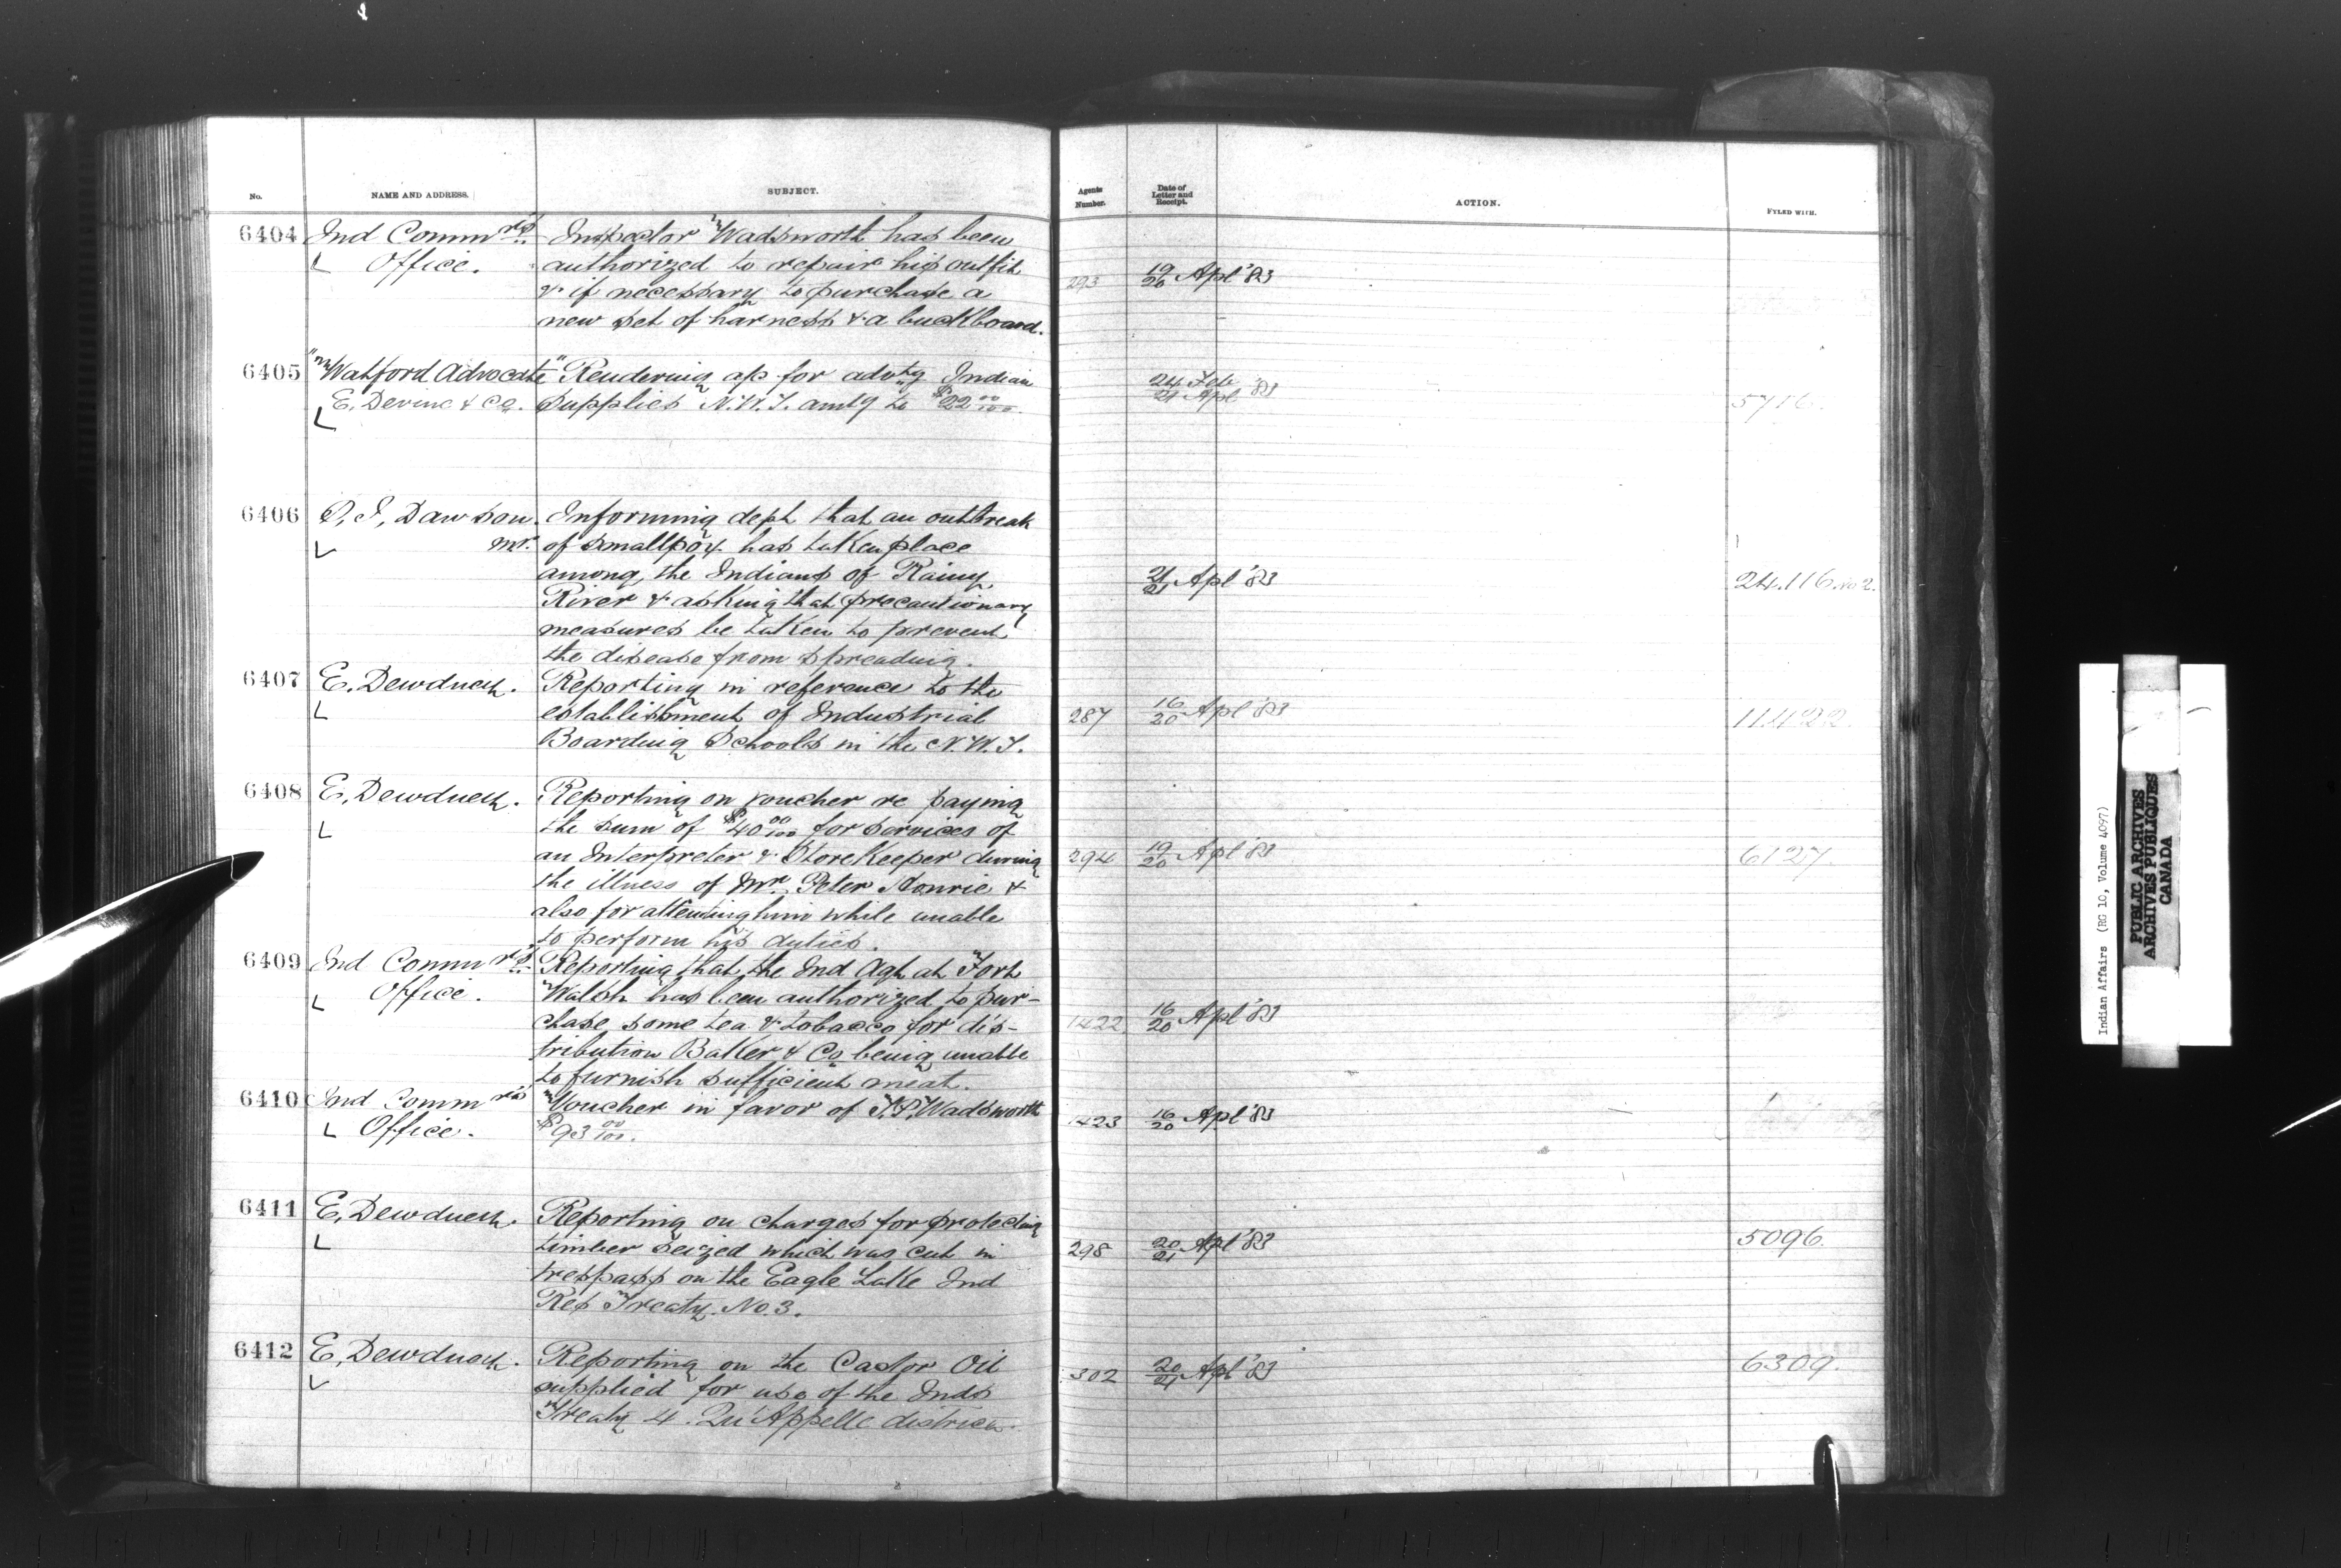 No. NAME AND ADDRESS. SUBJECT. Agents Number. Date of Letter and Receipt. ACTION. FYLED WITH.
6404 Ind Comm rs Inspector Wadsworth has been
Office. authorized to repair his outfit 293 19/20 Apl '83
& if necessary to purchase a
new set of harness & a buckboard.
6405 "Watford Advocate" Rendering a/c for advtg Indian 24 Feb
E. Devine & Co. Supplies N.W.T. amtg to $22 00/100. 21 Apl '83 5716.
6406 S. J. Dawson. Informing dept that an outbreak
mr. of smallpox has taken place
among the Indians of Rainy 21/21 Apl '83 24.116. No 2.
River & asking that precautionary
measures be taken to prevent
the disease from spreading.
6407 E. Dewdney. Reporting in reference to the
establishment of Industrial 287 16/20 Apl '83 11422.
Boarding Schools in the N.W.T.
6408 E. Dewdney. Reporting on voucher re paying
the sum of $40 00/100 for services of
an Interpreter & Storekeeper during 294 19/20 Apl '83 6127.
the illness of Mr. Peter &
also for attending him while unable
to perform his duties.
6409 Ind Comm rs Reporting that the Ind Agt at Fort
Office. Walsh has been authorized to pur-
chase some tea & tobacco for dis- 1422 16/20 Apl '83
tribution Baker & Co being unable
to furnish sufficient meat.
6410 Ind Comm rs Voucher in favor of T.P. Wadsworth
Office. $93 00/100. 1423 16/20 Apl '83
6411 E. Dewdney. Reporting on charges for protecting
timber seized which was cut in 298 20/21 Apl '83 5096.
trespass on the Eagle Lake Ind
Res Treaty No. 3.
6412 E. Dewdney. Reporting on the Castor Oil
supplied for use of the Inds 302 20/21 Apl '83 6309.
Treaty 4. Qu'Appelle district.
Indian Affairs (RG 10, Volume 4097)
PUBLIC ARCHIVES
ARCHIVES PUBLIQUES
CANADA